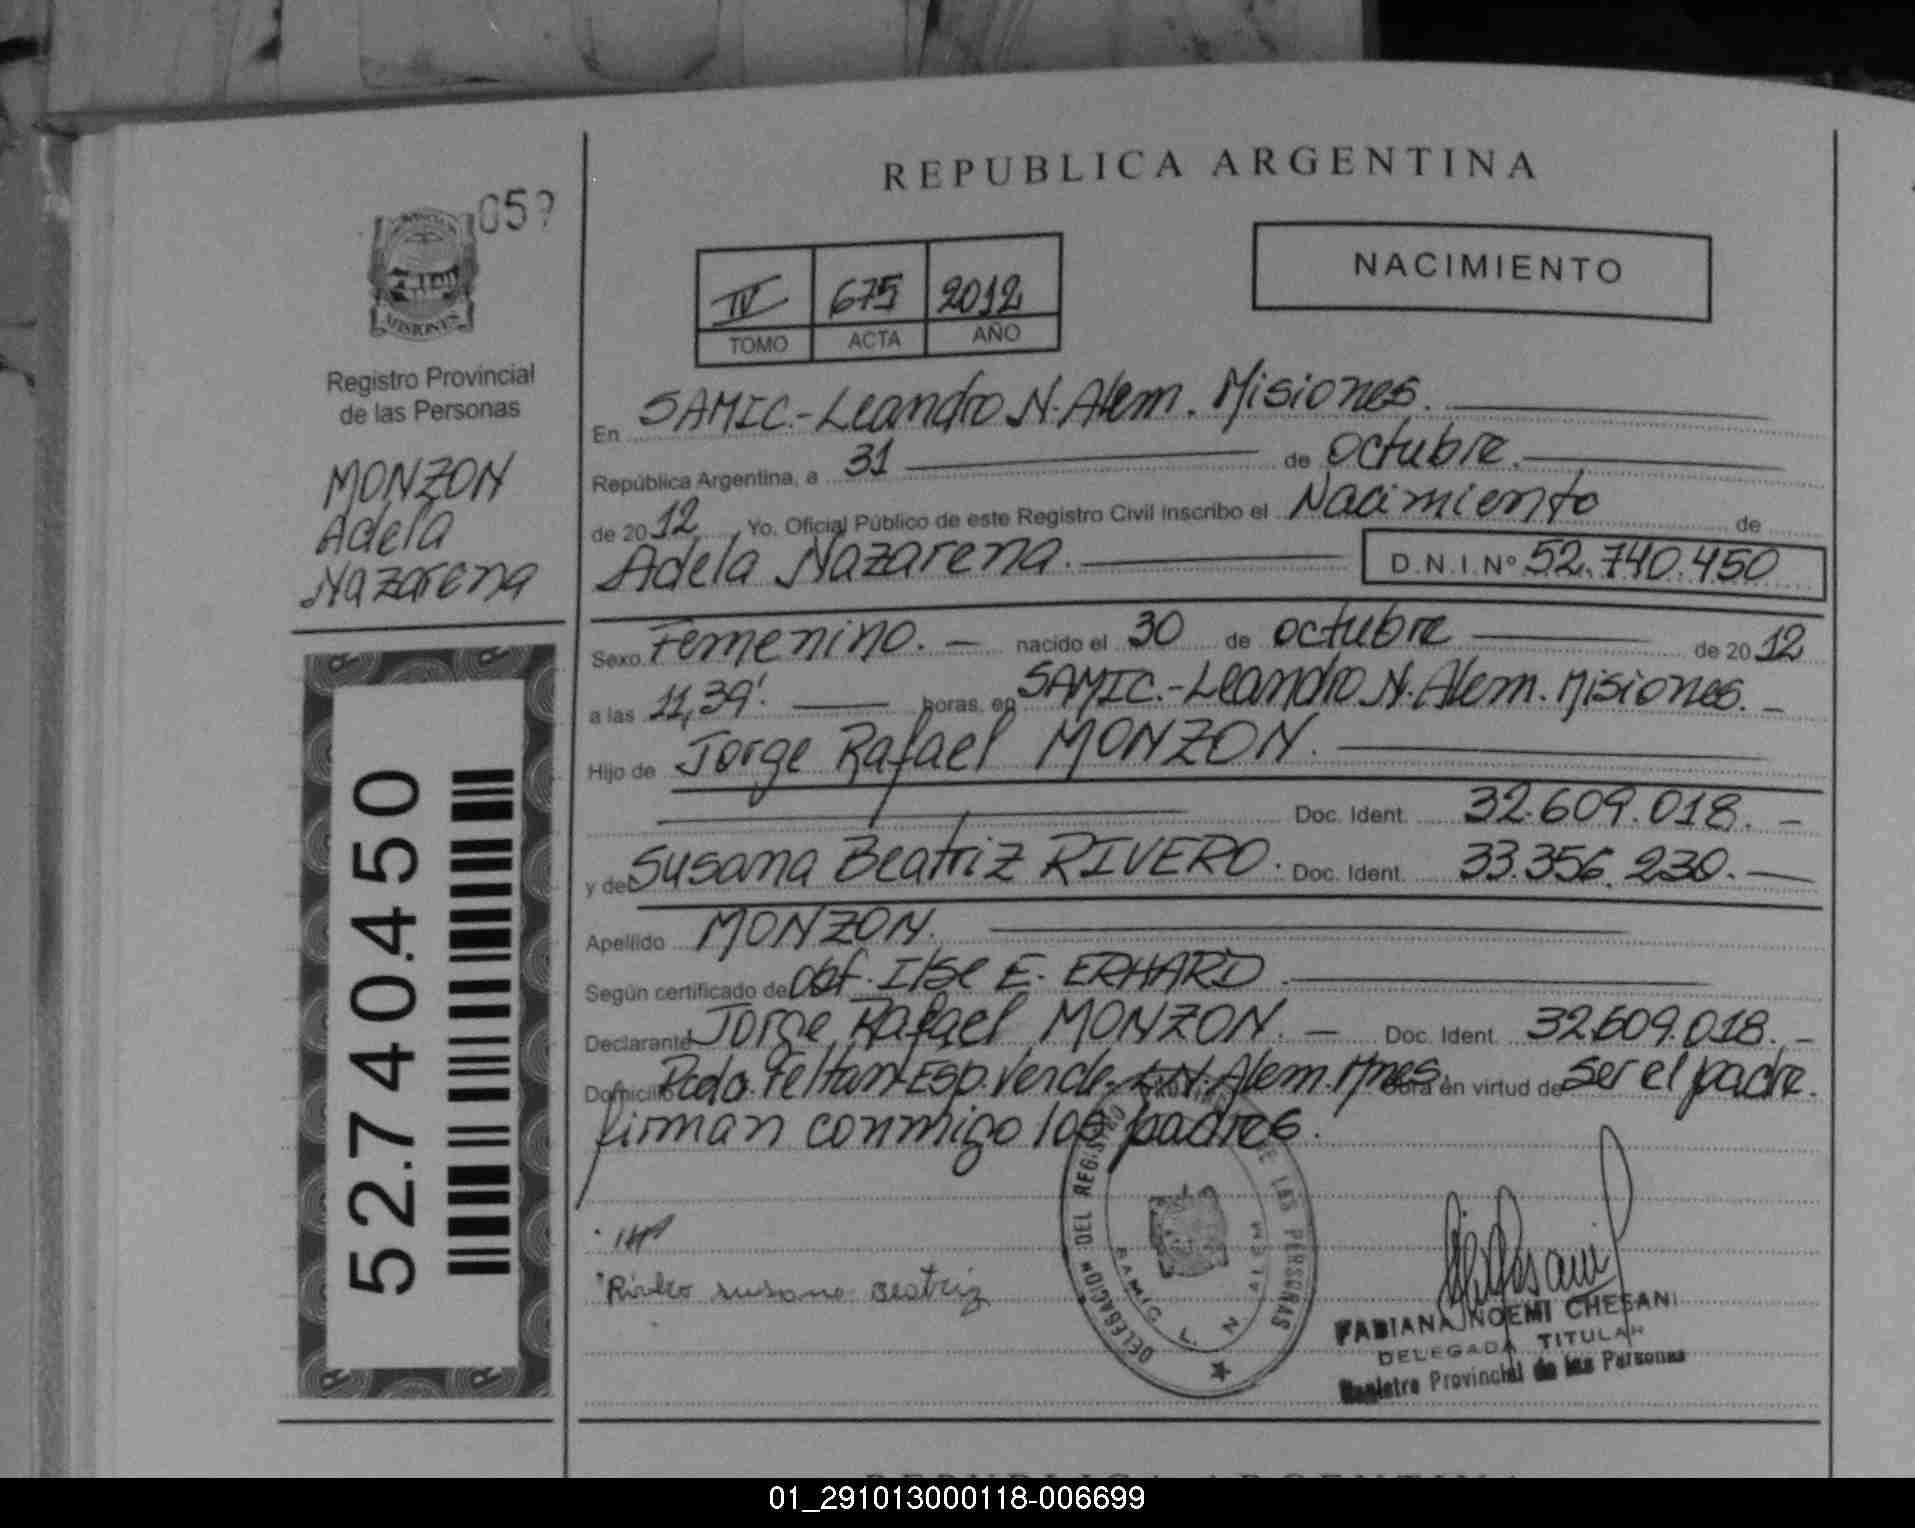 REPUBLICA ARGENTINA
059
MISIONES
Registro Provincial
de las Personas
MONZON
Adela
Nazarena
52.740.450
IV 675 2012
TOMO ACTA AÑO
NACIMIENTO
En SAMIC.-Leandro N. Alem. Misiones.
República Argentina, a 31 de octubre.
de 2012, Yo. Oficial Público de este Registro Civil inscribo el Nacimiento de
Adela Nazarena. D.N.I.Nº 52.740.450
Sexo Femenino. nacido el 30 de octubre de 2012
a las 11,39'. horas, en SAMIC.-Leandro N. Alem. Misiones.
Hijo de Jorge Rafael MONZON.
Doc. Ident. 32.609.018.
y de Susana Beatriz RIVERO. Doc. Ident. 33.356.230.
Apellido MONZON.
Según certificado de Obf. Ilse E. ERHARD
Declarante Jorge Rafael MONZON. Doc. Ident. 32.609.018.
Domicilio Pcda. Feltan-Esp. Verde. L.N. Alem. Mnes. Obra en virtud de ser el padre.
firman conmigo los padres.
Rivero susana Beatriz
DELEGACION DEL REGISTRO PROVINCIAL DE LAS PERSONAS
SAMIC L. N. ALEM
FABIANA NOEMI CHESANI
DELEGADA TITULAR
Registro Provincial de las Personas
REPUBLICA ARGENTINA
01_291013000118-006699